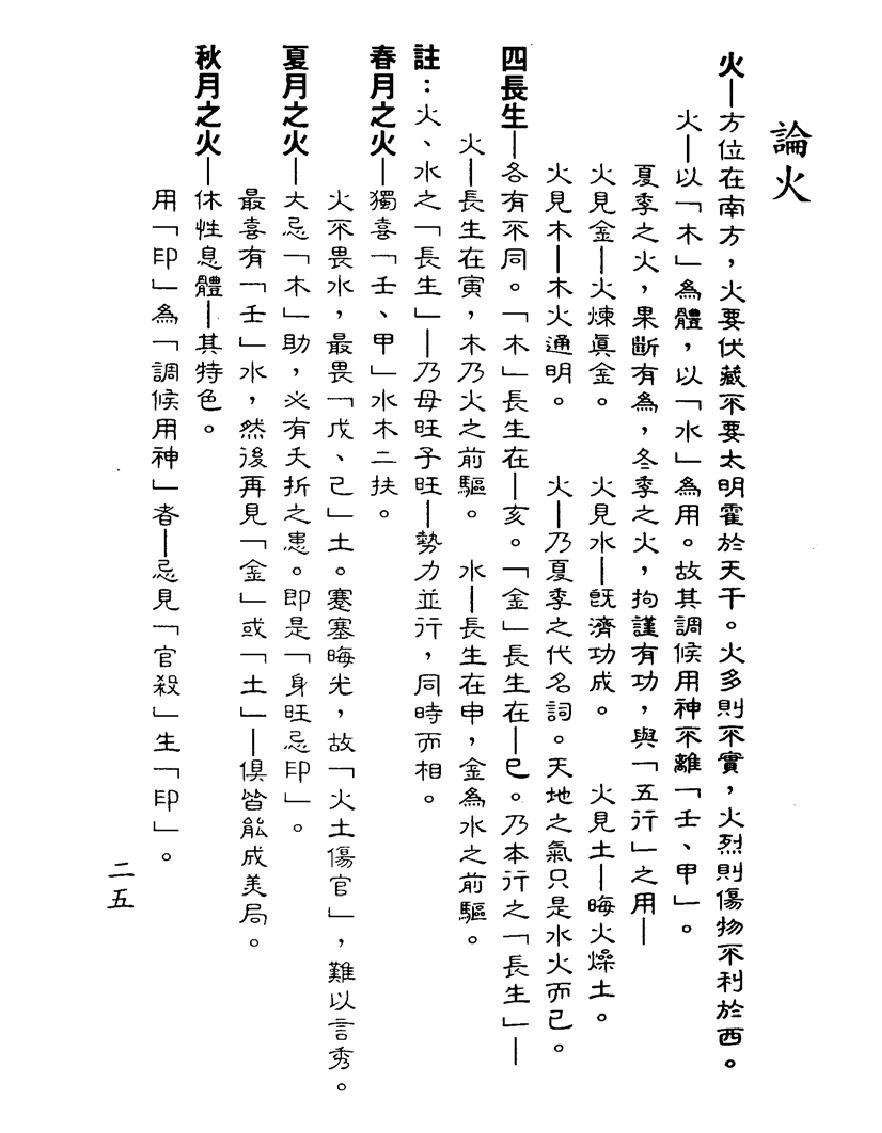 論火
火—方位在南方，火要伏藏不要太明霍於天干。火多則不實，火烈則傷物不利於西。
火—以「木」為體，以「水」為用。故其調候用神不離「壬、甲」。
夏季之火，果斷有為，冬季之火，拘謹有功，與「五行」之用—
火見金—火煉真金。　火見水—既濟功成。　火見土—晦火燥土。
火見木—木火通明。　火—乃夏季之代名詞。天地之氣只是水火而已。
四長生—各有不同。「木」長生在—亥。「金」長生在—巳。乃本行之「長生」—
火—長生在寅，木乃火之前驅。　水—長生在申，金為水之前驅。
註：火、水之「長生」—乃母旺子旺—勢力並行，同時而相。
春月之火—獨喜「壬、甲」水木二扶。
火不畏水，最畏「戊、己」土。蹇塞晦光，故「火土傷官」，難以言秀。
夏月之火—大忌「木」助，必有夭折之患。即是「身旺忌印」。
最喜有「壬」水，然後再見「金」或「土」—俱皆能成美局。
秋月之火—休性息體—其特色。
用「印」為「調候用神」者—忌見「官殺」生「印」。
二五